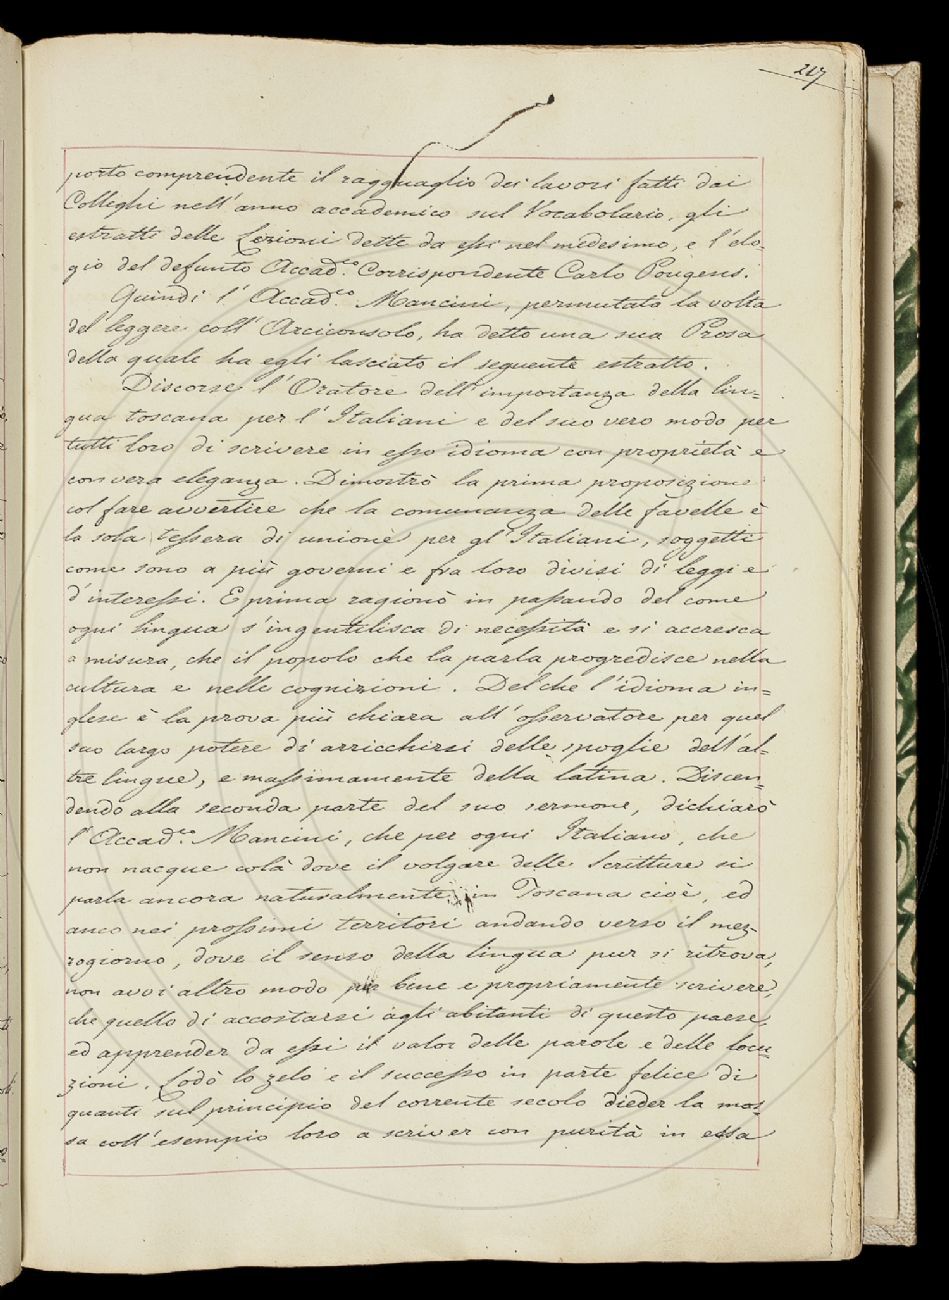 217
porto comprendente il ragguaglio dei lavori fatti dai
Colleghi nell'anno accademico sul Vocabolario, gli
estratti delle Lezioni dette da essi nel medesimo, e l'elo=
gio del defunto Accad.co Corrispondente Carlo Pougens.
Quindi l'Accad.co Mancini, permutata la volta
del leggere coll'Arciconsolo, ha detto una sua Prosa
della quale ha egli lasciato il seguente estratto.
Discorse l'Oratore dell'importanza della lin=
gua toscana per l'Italiani e del suo vero modo per
tutti loro di scrivere in esso idioma con proprietà e
con vera eleganza. Dimostrò la prima proposizione
col fare avvertire che la comunanza delle favelle è
la sola tessera di unione per gl'Italiani, soggetti
come sono a più governi e fra loro divisi di leggi e
d'interessi. E prima ragionò in passando del come
ogni lingua s'ingentilisca di necessità e si accresca
a misura, che il popolo che la parla progredisce nella
cultura e nelle cognizioni. Del che l'idioma in=
glese è la prova più chiara all'osservatore per quel
suo largo potere di arricchirsi delle spoglie dell'al=
tre lingue, e massimamente della latina. Discen=
dendo alla seconda parte del suo sermone, dichiarò
l'Accad.co Mancini, che per ogni Italiano, che
non nacque colà dove il volgare delle Scritture si
parla ancora naturalmente, in Toscana cioè, ed
anco nei prossimi territori andando verso il mez=
zogiorno, dove il senso della lingua pur si ritrova,
non avvi altro modo più bene e propriamente scrivere,
che quello di accostarsi agli abitanti di questo paese,
ed apprender da essi il valor delle parole e delle locu=
zioni. Lodò lo zelo e il successo in parte felice di
quanti sul principio del corrente secolo dieder la mos=
sa coll'esempio loro a scriver con purità in essa